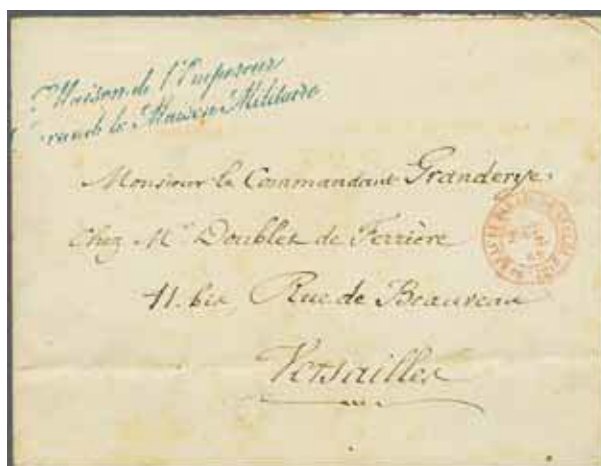 Maison de l'Empereur
le Maison Militaire
Monsieur le Commandant Granderye.
Chez Mr Doublet de Ferrière
11. bis Rue de Beauveau
Versailles